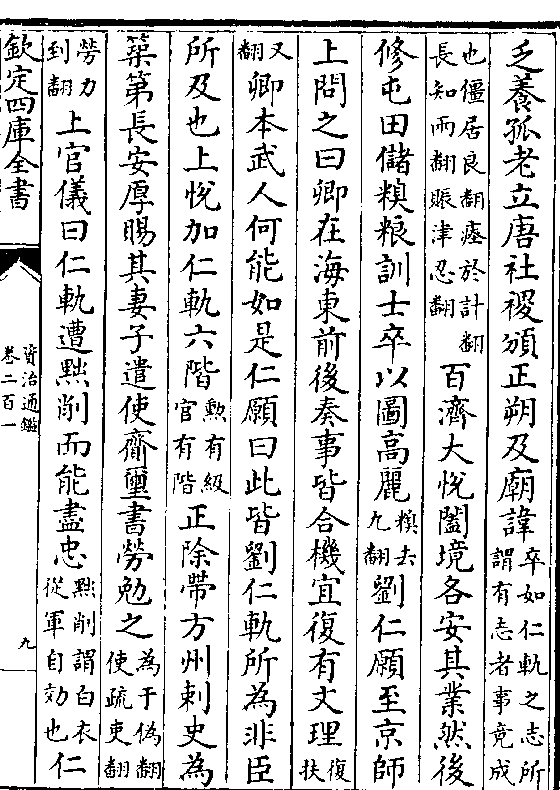 乏養孤老立唐社稷頒正朔及廟諱卒如仁軌之志所謂有志者事竟成
也僵居良翻瘞於計翻長知兩翻賬津忍翻百濟大悅闔境各安其業然後
修屯田儲糗粮訓士卒以圖高麗糗去九翻劉仁願至京師
上問之曰卿在海東前後奏事皆合機宜復有文理復扶
又翻卿本武人何能如是仁願曰此皆劉仁軌所為非臣
所及也上悅加仁軌六階勲有級官有階正除帶方州刺史為
築第長安厚賜其妻子遣使齎璽書勞勉之為于偽翻使疏吏翻
勞力到翻上官儀曰仁軌遭黜削而能盡忠黜削謂白衣從軍自効也仁
欽定四庫全書
資治通鑑
卷二百一
九